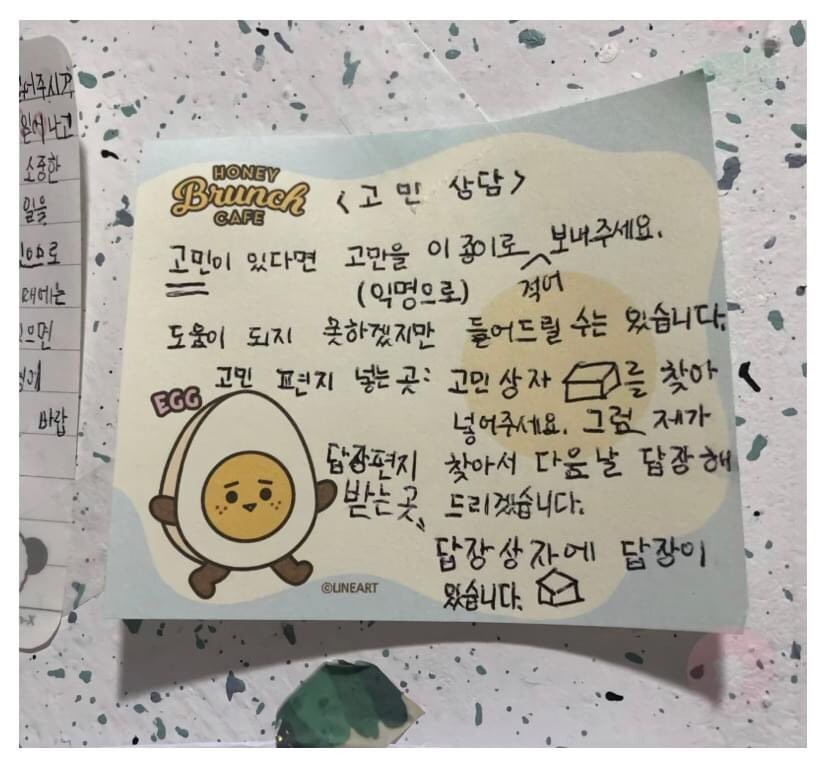 어주시기
소중한
일을
으로
때에는
으면
바랍
HONEY
Brunch
CAFE
<고민 상담>
고민이 있다면 고만을 이 종이로 적어 보내주세요.
(익명으로)
도움이 되지 못하겠지만 들어드릴 수는 있습니다.
고민 편지 넣는 곳: 고민상자 를 찾아
넣어주세요. 그럼 제가
찾아서 다음날 답장해
드리겠습니다.
EGG
답장편지
받는 곳
답장상자에 답장이
있습니다.
©LINEART